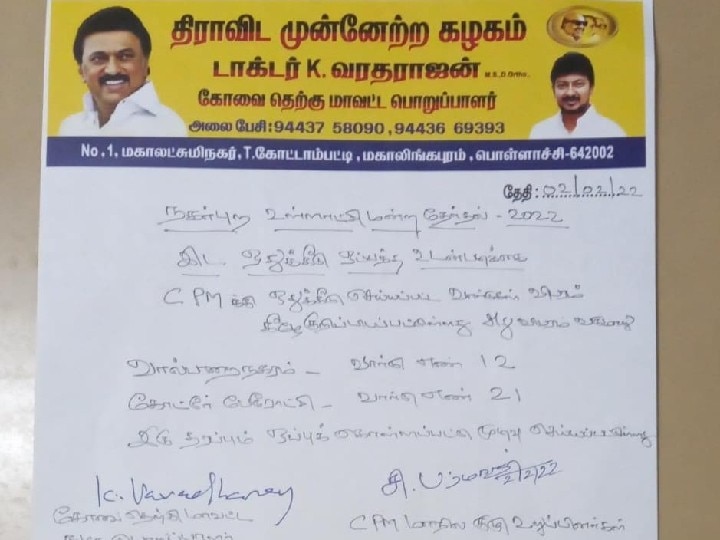 திராவிட முன்னேற்ற கழகம்
டாக்டர் K. வரதராஜன் M.S.,D.Ortho.,
கோவை தெற்கு மாவட்ட பொறுப்பாளர்
அலை பேசி : 94437 58090, 94436 69393
No, 1, மகாலட்சுமிநகர், T.கோட்டாம்பட்டி , மகாலிங்கபுரம், பொள்ளாச்சி-642002
தேதி : 02/02/22
நகர்புற உள்ளாட்சி மன்ற தேர்தல் - 2022
இட ஒதுக்கீடு ஒப்பந்த உடன்படிக்கை
CPM க்கு ஒதுக்கீடு செய்யப்பட்ட வார்டுகள் விபரம்
வால்பாறை நகரம் - வார்டு எண் 12
பேரூராட்சி - வார்டு எண் 21
இரு தரப்பும் ஒப்புக் கொள்ளப்பட்டு முடிவு செய்யப்பட்டுள்ளது
K. Varadharaj
2/2/22
கோவை தெற்கு மாவட்ட
CPM மாநில குழு உறுப்பினர்கள்